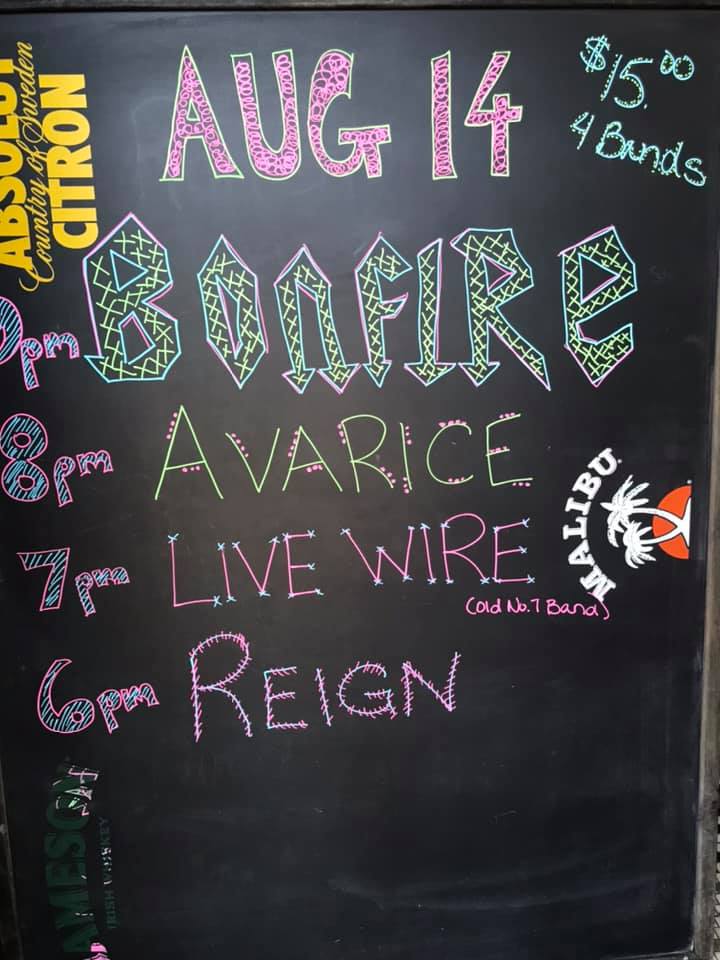 AUG 14
$15.00
4 Bands
ABSOLUT
Country of Sweden
CITRON
9pm BONFIRE
8pm AVARICE
7pm LIVE WIRE
(Old No.7 Band)
MALIBU
6pm REIGN
JAMESON
IRISH WHISKEY